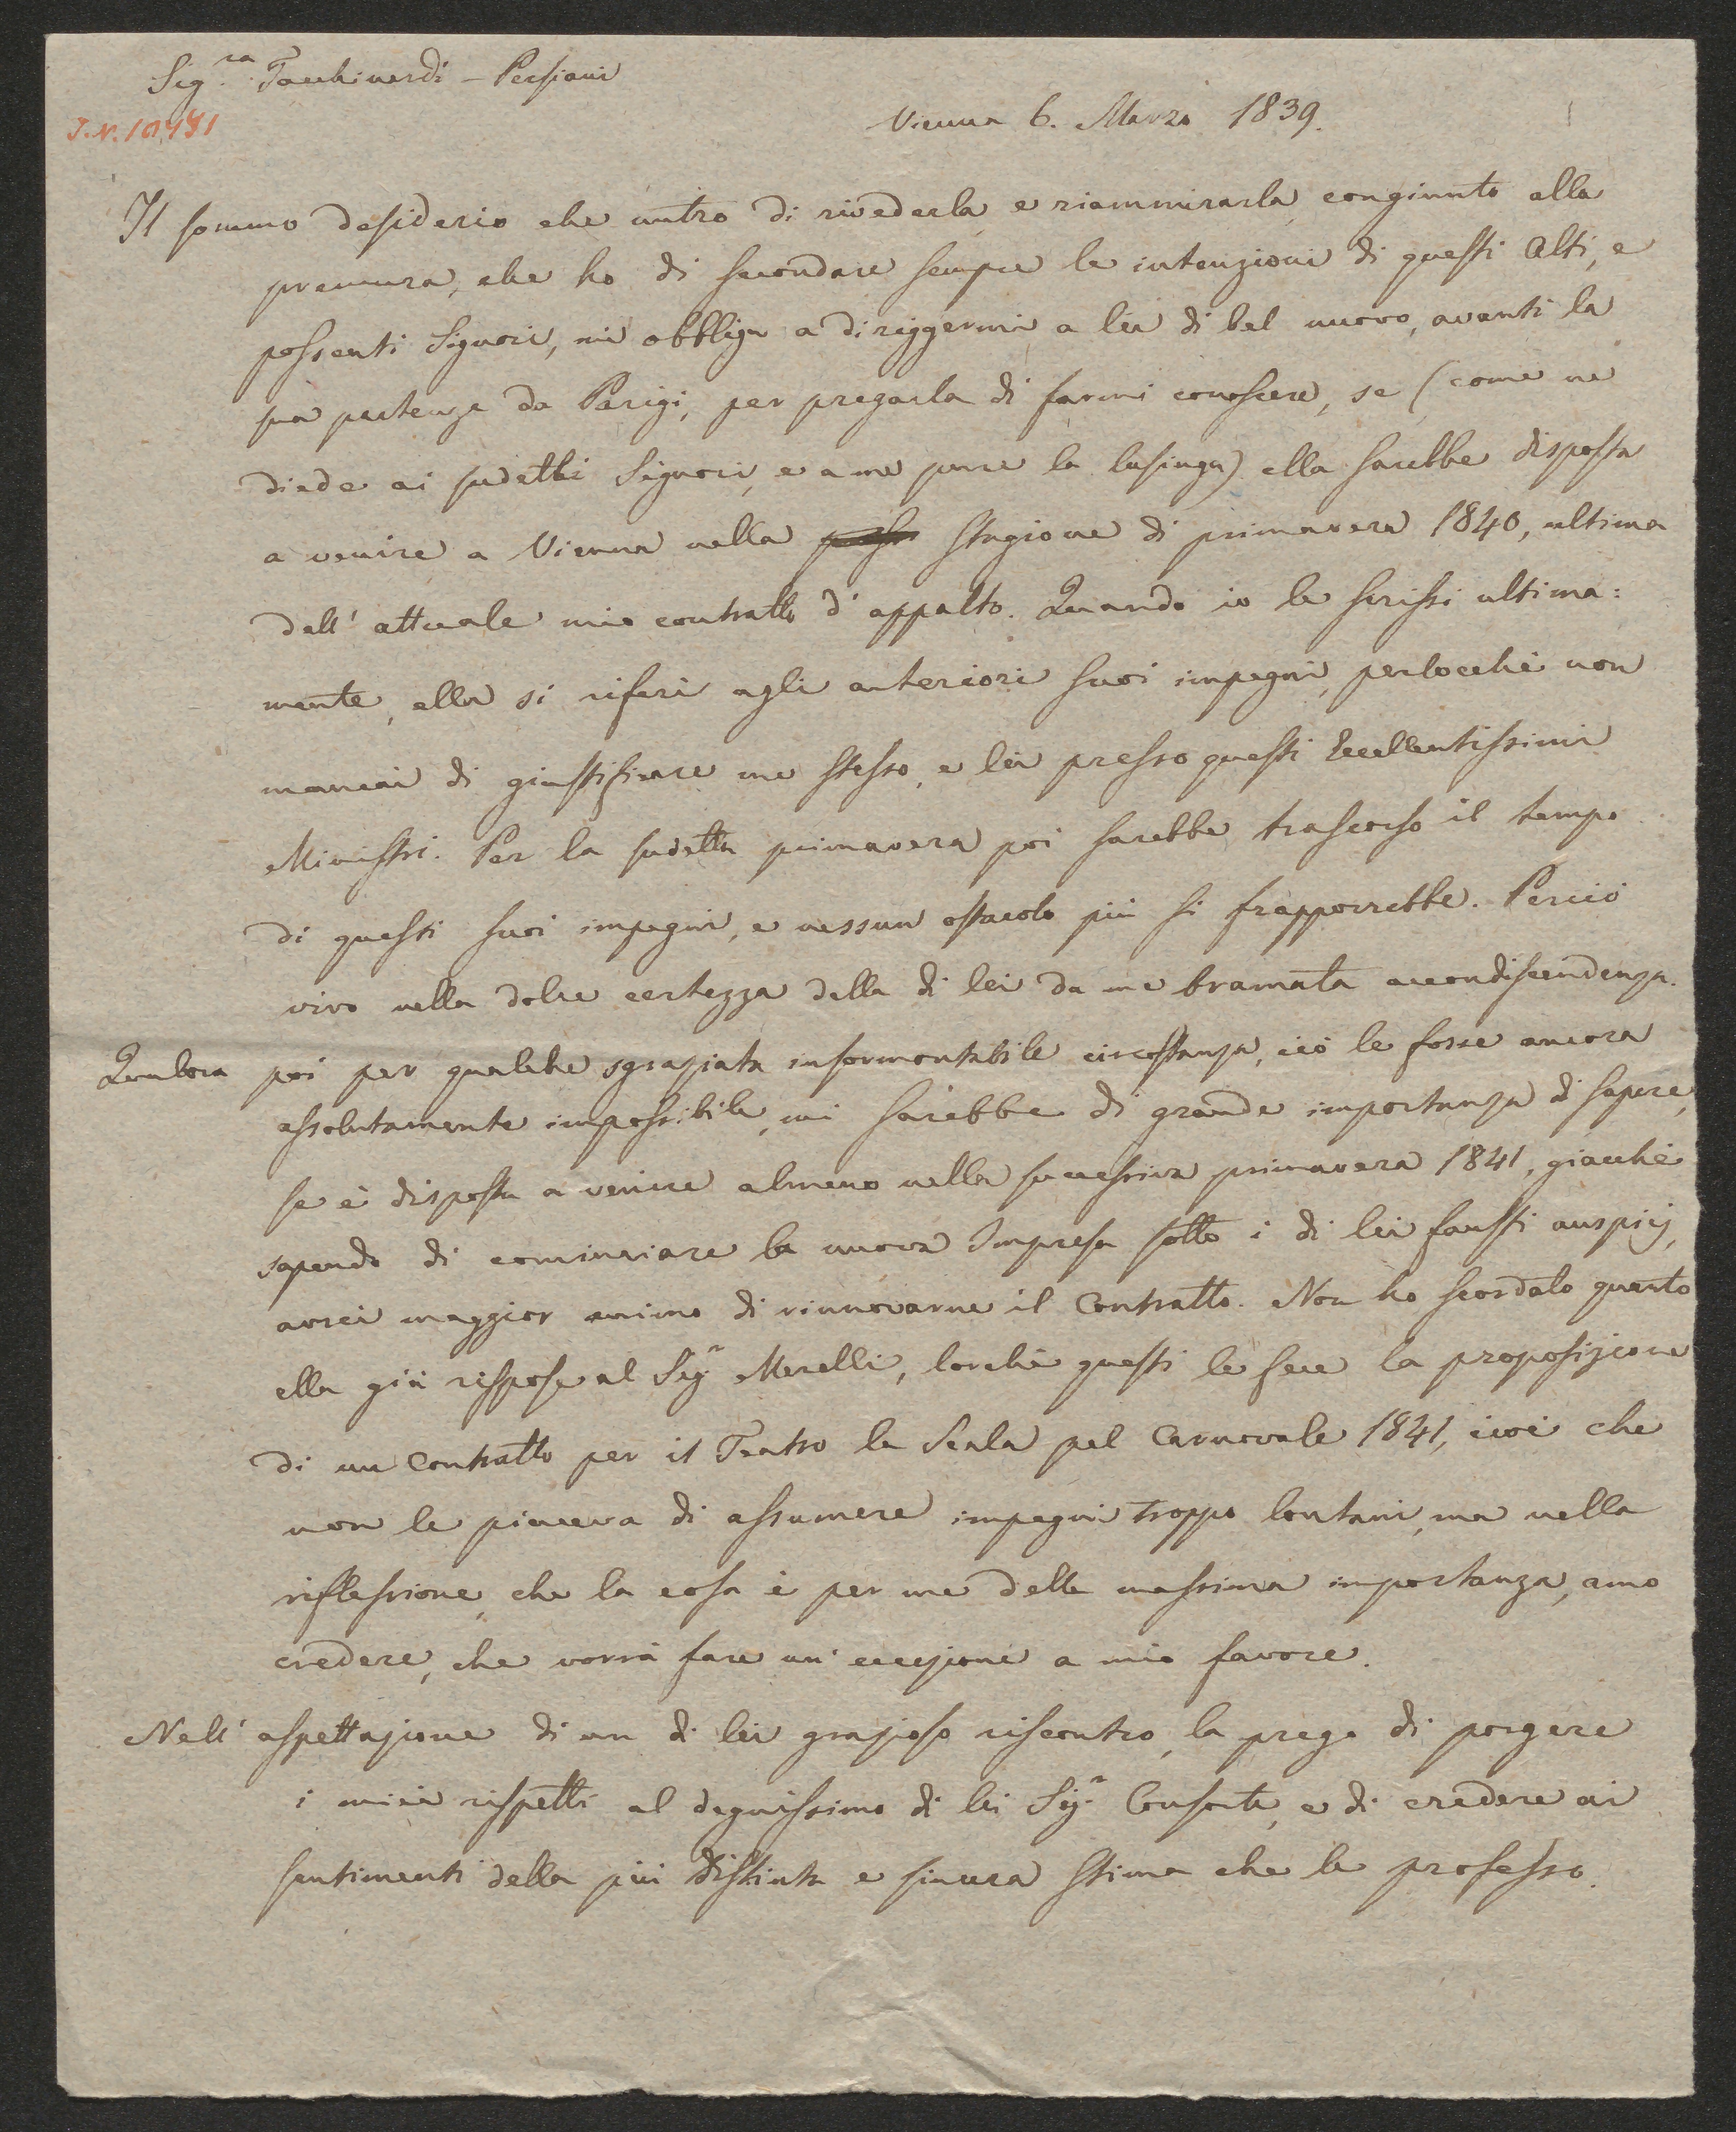 Sig.ra Tacchinardi - Persiani
J.N. 10,481
Vienna 6. Marzo 1839.
Il sommo desiderio che nutro di rivederla, e riammirarla congiunto alla
premura, che ho di secondare sempre le intenzioni di questi Alti, e
possenti Signori, mi obbliga a diriggermi a lei di bel nuovo, avanti la
sua partenza da Parigi, per pregarla di farmi conoscere, se (come ne
diede ai sudetti Signori, e a me pure la lusinga) ella sarebbe disposta
a venire a Vienna nella stagione di primavera 1840, ultima
dell' attuale mio contratto d' appalto. Quando io le scrissi ultima:
mente, ella si riferì agli anteriori suoi impegni, perlocchè non
mancai di giustificare me stesso, e lei presso questi Eccellentissimi
Ministri. Per la sudetta primavera poi sarebbe trascorso il tempo
di questi suoi impegni, e nessun ostacolo più si frapporrebbe. Perciò
vivo nella dolce certezza della di lei da me bramata accondiscendenza.
Qualora poi per qualche sgraziata insormontabile circostanza, ciò le fosse ancora
assolutamente impossibile, mi sarebbe di grande importanza di sapere,
se è disposta a venire almeno nella successiva primavera 1841, giacchè
sapendo di cominciare la nuova Impresa sotto i di lei fausti auspicj,
avrei maggior animo di rinnovarne il Contratto. Non ho scordato quanto
ella già rispose al Sig.r Merelli, lorchè questi le fece la proposizione
di un Contratto per il Teatro la Scala pel Carnovale 1841, cioè che
non le piaceva di assumere impegni troppo lontani, ma nella
riflessione, che la cosa è per me della massima importanza, amo
credere, che vorrà fare un' eccezione a mio favore.
Nell' aspettazione di un di lei grazioso riscontro, la prego di porgere
i miei rispetti al degnissimo di lei Sig.r Consorte, e di credere ai
sentimenti della più distinta e sincera stima che le professo.